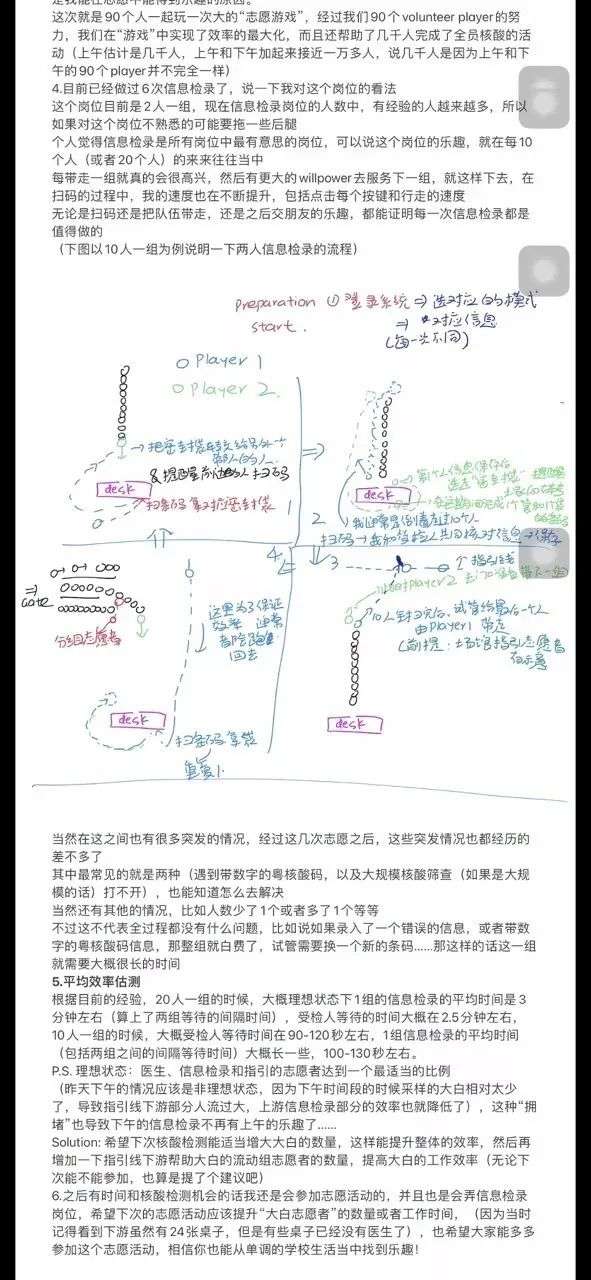 这次就是90个人一起玩一次大的“志愿游戏”，经过我们90个volunteer player的努
力，我们在“游戏”中实现了效率的最大化，而且还帮助了几千人完成了全员核酸的活
动（上午估计是几千人，上午和下午加起来接近一万多人，说几千人是因为上午和下
午的90个player并不完全一样）
4.目前已经做过6次信息检录了，说一下我对这个岗位的看法
这个岗位目前是2人一组，现在信息检录岗位的人数中，有经验的人越来越多，所以
如果对这个岗位不熟悉的可能要拖一些后腿
个人觉得信息检录是所有岗位中最有意思的岗位，可以说这个岗位的乐趣，就在每10
个人（或者20个人）的来来往往当中
每带走一组就真的会很高兴，然后有更大的willpower去服务下一组，就这样下去，在
扫码的过程中，我的速度也在不断提升，包括点击每个按键和行走的速度
无论是扫码还是把队伍带走，还是之后交朋友的乐趣，都能证明每一次信息检录都是
值得做的
（下图以10人一组为例说明一下两人信息检录的流程）
preparation ① 登录系统 ⇒ 选对应的模式
start.
⇒ 对应信息
(每一次不同)
Player 1
Player 2.
& 提醒
人扫码
desk
扫条码 拿对应密封袋
1
desk
2
扫码→我和受检人共同核对信息→保存
4
3
个指引线
⇒
Gate
分组志愿者
这里为了保证
效率 通常
会
回去
desk
扫条码 拿袋
重复1.
10人全扫完后，试管给最后一个人
由Player1 带走
(前提：场馆指引志愿者
desk
当然在这之间也有很多突发的情况，经过这几次志愿之后，这些突发情况也都经历的
差不多了
其中最常见的就是两种（遇到带数字的粤核酸码，以及大规模核酸筛查（如果是大规
模的话）打不开），也能知道怎么去解决
当然还有其他的情况，比如人数少了1个或者多了1个等等
不过这不代表全过程都没有什么问题，比如说如果录入了一个错误的信息，或者带数
字的粤核酸码信息，那整组就白费了，试管需要换一个新的条码......那这样的话这一组
就需要大概很长的时间
5.平均效率估测
根据目前的经验，20人一组的时候，大概理想状态下1组的信息检录的平均时间是3
分钟左右（算上了两组等待的间隔时间），受检人等待的时间大概在2.5分钟左右，
10人一组的时候，大概受检人等待时间在90-120秒左右，1组信息检录的平均时间
（包括两组之间的间隔等待时间）大概长一些，100-130秒左右。
P.S. 理想状态：医生、信息检录和指引的志愿者达到一个最适当的比例
（昨天下午的情况应该是非理想状态，因为下午时间段的时候采样的大白相对太少
了，导致指引线下游部分人流过大，上游信息检录部分的效率也就降低了），这种“拥
堵”也导致下午的信息检录不再有上午的乐趣了......
Solution: 希望下次核酸检测能适当增大大白的数量，这样能提升整体的效率，然后再
增加一下指引线下游帮助大白的流动组志愿者的数量，提高大白的工作效率（无论下
次能不能参加，也算是提了个建议吧）
6.之后有时间和核酸检测机会的话我还是会参加志愿活动的，并且也是会弄信息检录
岗位，希望下次的志愿活动应该提升“大白志愿者”的数量或者工作时间，（因为当时
记得看到下游虽然有24张桌子，但是有些桌子已经没有医生了），也希望大家能多多
参加这个志愿活动，相信你也能从单调的学校生活当中找到乐趣！